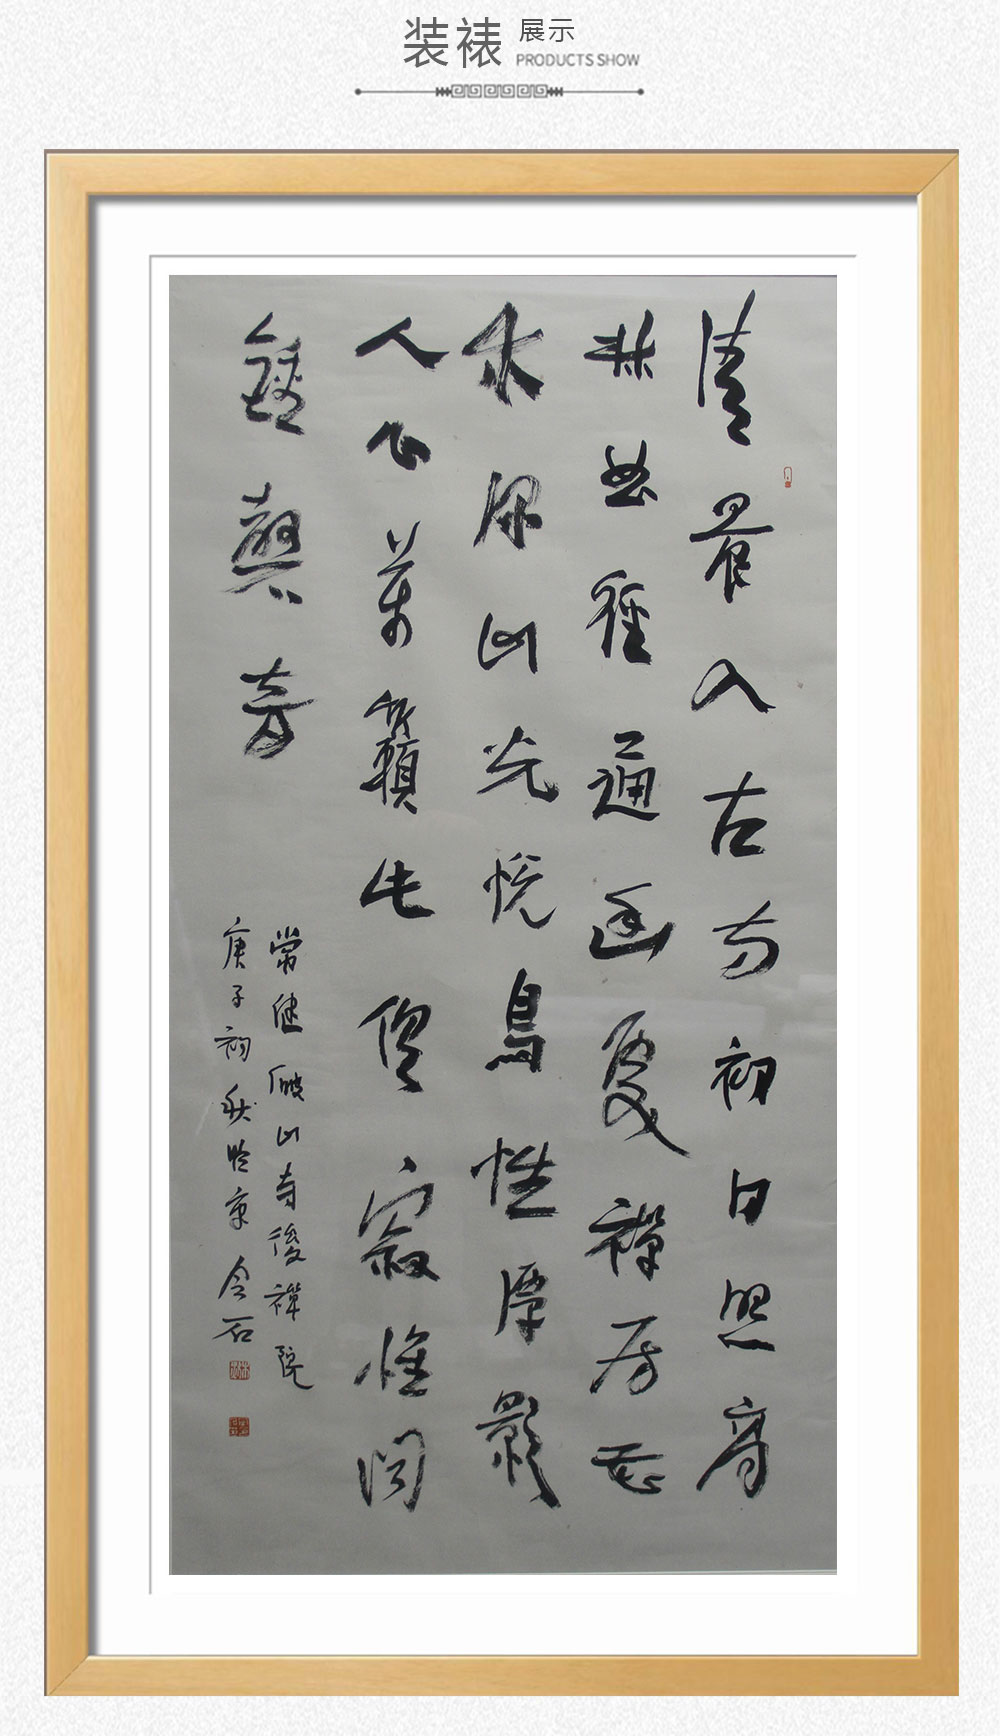 装裱 展示
PRODUCTS SHOW
清晨入古寺初日照高
林曲徑通幽處禪房花
木深山光悅鳥性潭影
人心萬籟此俱寂惟聞
鐘磬音
常建破山寺後禪院
庚子初秋於京石